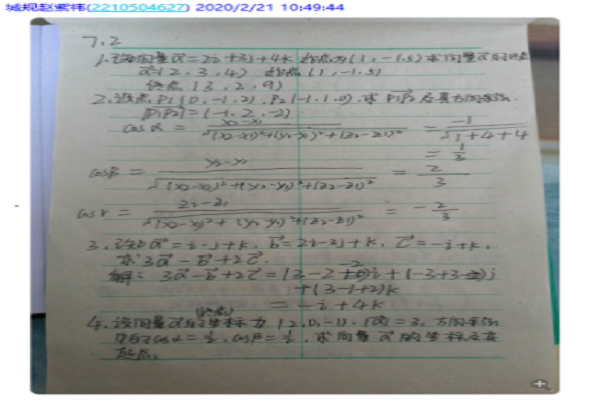 城规赵紫祎(2210504627) 2020/2/21 10:49:44
7.2
1. 设向量 a⃗ = 2i+3j+4k 起点为(1,-1.5) 求向量a⃗的终点
a⃗(2,3,4) 起点(1,-1.5)
终点(3,2,9)
2. 设点P1(0,-1,2), P2(-1,1,0), 求P1P2及其方向余弦.
|P1P2|=(-1,2,-2)
cosα = x2-x1/√(x2-x1)²+(y2-y1)²+(z2-z1)² = -1/√1+4+4
= 1/3
cosβ = y2-y1/√(x2-x1)²+(y2-y1)²+(z2-z1)² = 2/3
cosγ = z2-z1/√(x2-x1)²+(y2-y1)²+(z2-z1)² = -2/3
3. 已知a⃗=i-j+k, b⃗=2i-3j+k, c⃗=-i+k,
求3a⃗-b⃗+2c⃗.
解: 3a⃗-b⃗+2c⃗=(3-2-2)i+(-3+3)j
+(3-1+2)k
= -i+4k
(终点)
4. 设向量a⃗的坐标为(2,0,-1), |a⃗|=3, 方向余弦
中的cosα=1/2, cosβ=1/2, 求向量a⃗的坐标及其
起点.